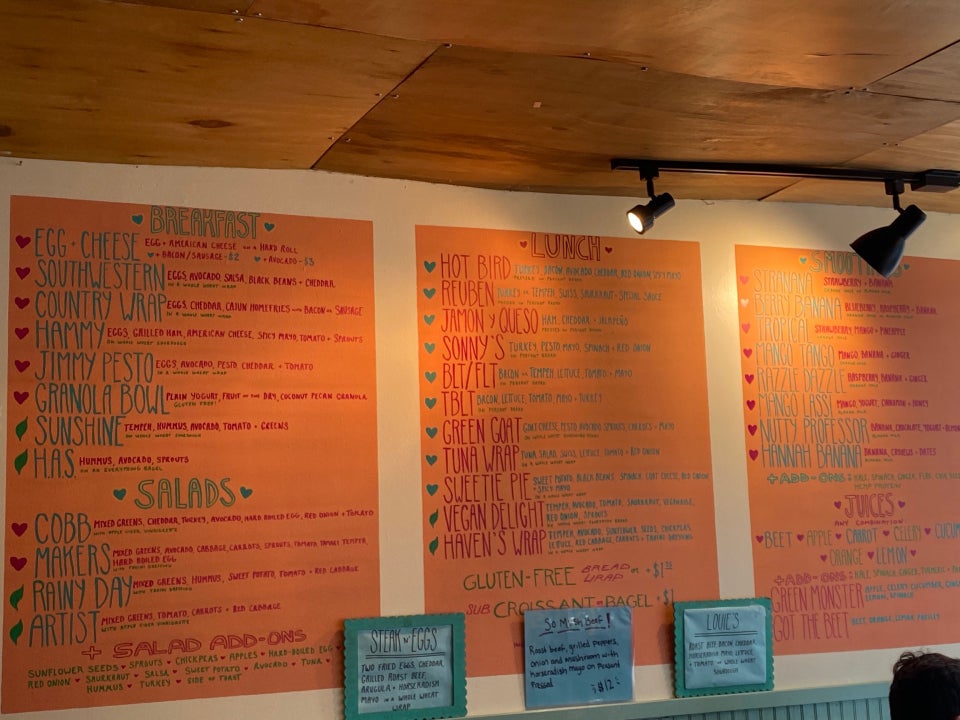 BREAKFAST
EGG + CHEESE EGG + AMERICAN CHEESE ON A HARD ROLL
+ BACON/SAUSAGE - $2 + AVOCADO - $3
SOUTHWESTERN EGGS, AVOCADO, SALSA, BLACK BEANS + CHEDDAR
IN A WHOLE WHEAT WRAP
COUNTRY WRAP EGGS, CHEDDAR, CAJUN HOMEFRIES WITH BACON OR SAUSAGE
IN A WHOLE WHEAT WRAP
HAMMY EGGS, GRILLED HAM, AMERICAN CHEESE, SPICY MAYO, TOMATO + SPROUTS
ON WHOLE WHEAT SOURDOUGH
JIMMY PESTO EGGS, AVOCADO, PESTO, CHEDDAR + TOMATO
IN A WHOLE WHEAT WRAP
GRANOLA BOWL PLAIN YOGURT, FRUIT OF THE DAY, COCONUT PECAN GRANOLA
GLUTEN FREE!
SUNSHINE TEMPEH, HUMMUS, AVOCADO, TOMATO + GREENS
ON WHOLE WHEAT SOURDOUGH
H.A.S. HUMMUS, AVOCADO, SPROUTS
ON AN EVERYTHING BAGEL
SALADS
COBB MIXED GREENS, CHEDDAR, TURKEY, AVOCADO, HARD BOILED EGG, RED ONION + TOMATO
WITH APPLE CIDER VINAIGRETTE
MAKERS MIXED GREENS, AVOCADO, CABBAGE, CARROTS, SPROUTS, TOMATO, TOMATO, TEMPEH,
HARD BOILED EGG
WITH TAHINI DRESSING
RAINY DAY MIXED GREENS, HUMMUS, SWEET POTATO, TOMATO + RED CABBAGE
WITH TAHINI DRESSING
ARTIST MIXED GREENS, TOMATO, CARROTS + RED CABBAGE
WITH APPLE CIDER VINAIGRETTE
+ SALAD ADD-ONS
SUNFLOWER SEEDS SPROUTS CHICKPEAS APPLES HARD-BOILED EGG
RED ONION SAURKRAUT SALSA SWEET POTATO AVOCADO TUNA
HUMMUS TURKEY SIDE OF TOAST
LUNCH
HOT BIRD TURKEY, BACON, AVOCADO, CHEDDAR, RED ONION, SPICY MAYO
PRESSED ON PEASANT BREAD
REUBEN TURKEY OR TEMPEH, SWISS, SAURKRAUT - SPECIAL SAUCE
PRESSED ON PEASANT BREAD
JAMON Y QUESO HAM, CHEDDAR + JALAPEÑO
PRESSED ON PEASANT BREAD
SONNY'S TURKEY, PESTO MAYO, SPINACH + RED ONION
ON PEASANT BREAD
BLT/FLT BACON OR TEMPEH, LETTUCE, TOMATO + MAYO
ON PEASANT BREAD
TBLT BACON, LETTUCE, TOMATO, MAYO + TURKEY
ON PEASANT BREAD
GREEN GOAT GOAT CHEESE, PESTO, AVOCADO, SPROUTS, CARROTS + MAYO
ON WHOLE WHEAT SOURDOUGH BREAD
TUNA WRAP TUNA SALAD, SWISS, LETTUCE, TOMATO + RED ONION
IN A WHOLE WHEAT WRAP
SWEETIE PIE SWEET POTATO, BLACK BEANS, SPINACH, GOAT CHEESE, RED ONION
+ SPICY MAYO
IN A WHOLE WHEAT WRAP
VEGAN DELIGHT TEMPEH, AVOCADO, TOMATO, SAURKRAUT, VEGENAISE,
RED ONION, SPROUTS
ON WHOLE WHEAT SOURDOUGH BREAD
HAVEN'S WRAP TEMPEH, AVOCADO, SUNFLOWER SEEDS, CHICKPEAS,
LETTUCE, RED CABBAGE, CARROTS + TAHINI DRESSING
IN A WHOLE WHEAT WRAP
GLUTEN-FREE BREAD OR WRAP +$1
SUB CROISSANT - BAGEL +$1
SMOOTHIES
STRANANA STRAWBERRY + BANANA
BERRY BANANA BLUEBERRY, RASPBERRY + BANANA
TROPICAL STRAWBERRY, MANGO + PINEAPPLE
MANGO TANGO MANGO, BANANA + GINGER
RAZZLE DAZZLE RASPBERRY, BANANA + GINGER
MANGO LASSI MANGO, YOGURT, CINNAMON + HONEY
NUTTY PROFESSOR BANANA, CHOCOLATE, YOGURT +
HANNAH BANANA BANANA, CASHEWS + DATES
+ ADD-ONS: KALE, SPINACH, GINGER, FLAX, CHIA SEEDS
HEMP PROTEIN
JUICES
ANY COMBINATION
BEET APPLE CARROT CELERY
ORANGE LEMON
+ADD-ONS: KALE, SPINACH, GINGER, TURMERIC
GREEN MONSTER APPLE, CELERY, CUCUMBER, GINGER,
LEMON, SPINACH
GOT THE BEET BEET, ORANGE, LEMON, PARSLEY
STEAK N' EGGS
TWO FRIED EGGS, CHEDDAR,
GRILLED ROAST BEEF,
ARUGULA + HORSERADISH
MAYO IN A WHOLE WHEAT
WRAP
So Much Beef!
Roast beef, grilled peppers,
onion and mushroom with
horseradish mayo on Peasant
Pressed
$12
LOUIE'S
ROAST BEEF, BACON, CHEDDAR,
HORSERADISH MAYO, LETTUCE
+ TOMATO ON WHOLE WHEAT
SOURDOUGH